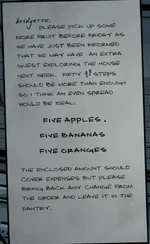 bridgette,
PLEASE PICK UP SOME
MORE FRUIT BEFORE FRIDAY AS
WE HAVE JUST BEEN INFORMED
THAT WE MAY HAVE AN EXTRA
GUEST EXPLORING THE HOUSE
NEXT WEEK. FIFTY STEPS
SHOULD BE MORE THAN ENOUGH
SO I THINK AN EVEN SPREAD
WOULD BE IDEAL:
FIVE APPLES.
FIVE BANANAS
FIVE ORANGES
THE ENCLOSED AMOUNT SHOULD
COVER EXPENSES BUT PLEASE
BRING BACK ANY CHANGE FROM
THE ORDER AND LEAVE IT IN THE
PANTRY.